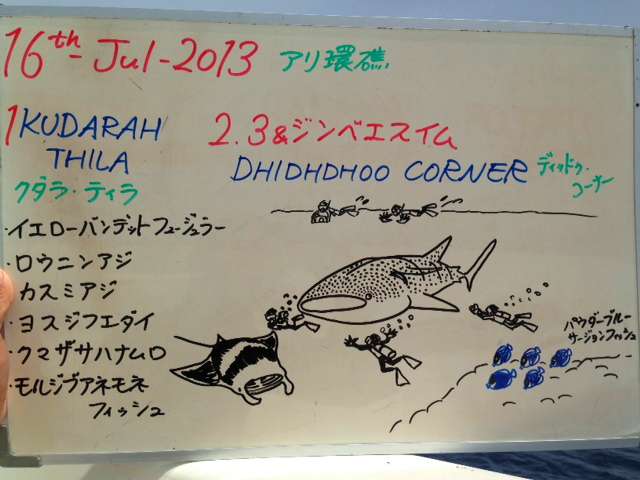 16th-Jul-2013 アリ環礁
1 KUDARAH
THILA
クダラ・ティラ
2.3&ジンベエスイム
DHIDHDHOO CORNER
ディドゥドゥ・
コーナー
・イエローバンデットフュージュラー
・ロウニンアジ
・カスミアジ
・ヨスジフエダイ
・クマザサハナムロ
・モルジブアネモネ
フィッシュ
パウダーブルー
サージョンフィッシュ